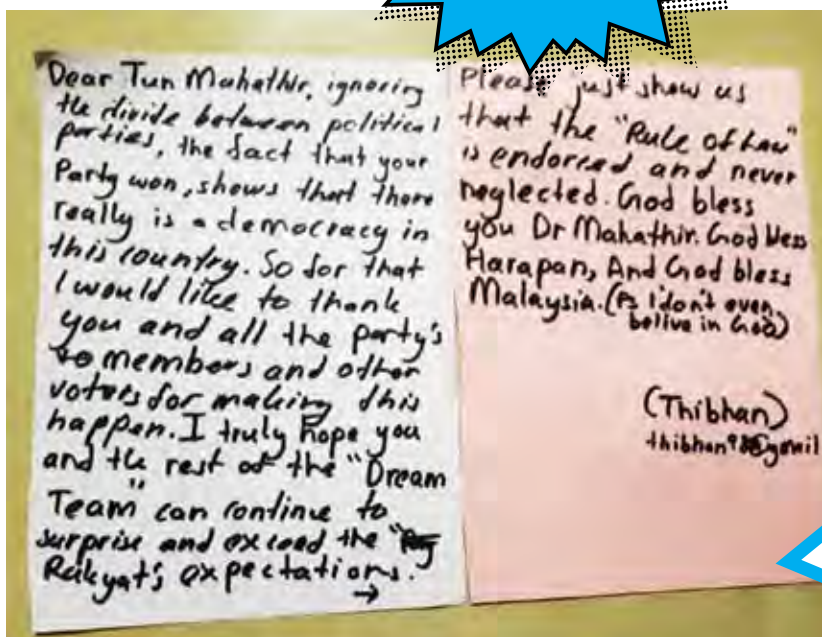 Dear Tun Mahathir, ignoring
the divide between political
parties, the fact that your
Party won, shows that there
really is a democracy in
this country. So for that
I would like to thank
you and all the party's
members and other
voters for making this
happen. I truly hope you
and the rest of the "Dream
Team" can continue to
surprise and exceed the "
Rakyat's expectations.
→
Please just show us
that the "Rule of Law"
is endorsed and never
neglected. God bless
you Dr Mahathir. God bless
Harapan, And God bless
Malaysia. (Ps I don't even
belive in God)
(Thibhan)